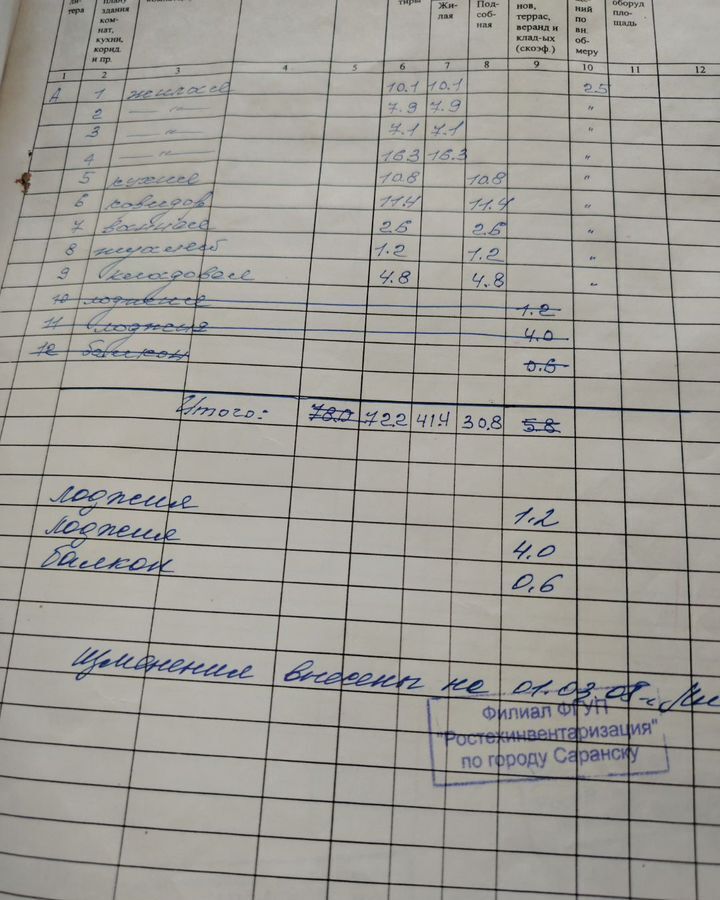 ли- плану нов, ний оборуд
тера здания тиры Жи- Под- террас, по пло-
ком- лая соб- веранд и вн. щадь
нат, ная клад-ых об-
кухни, (скоэф.) меру
корид.
и пр.
1 2 3 4 5 6 7 8 9 10 11 12
А 1 жилая 10.1 10.1 2.5
2 — " — 7.9 7.9 "
3 — " — 7.1 7.1 "
4 — " — 16.3 16.3 "
5 кухня 10.8 10.8 "
6 коридор 11.4 11.4 "
7 ванная 2.6 2.6 "
8 туалет 1.2 1.2 "
9 кладовая 4.8 4.8 "
10 лоджия 1.2
11 лоджия 4.0
12 балкон 0.6
Итого: 78.0 72.2 41.4 30.8 5.8
лоджия 1.2
лоджия 4.0
балкон 0,6
Изменения внесены на 01.03.08г.
Филиал ФГУП
"Ростехинвентаризация"
по городу Саранску